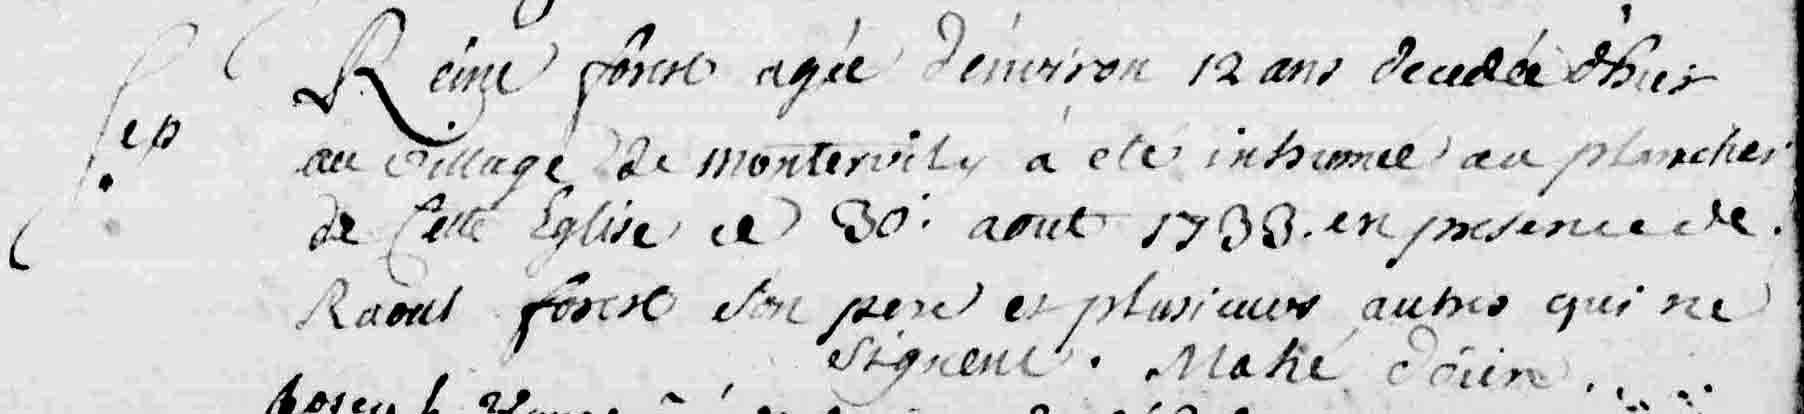 Sep
Reine forest agée d'environ 12 ans decedée d'hier
au village de montervily a été inhumée au plancher
de cette Eglise ce 30. aout 1733. en presence de.
Raoul forest son pere et plusieurs autres qui ne
signent. Mahé